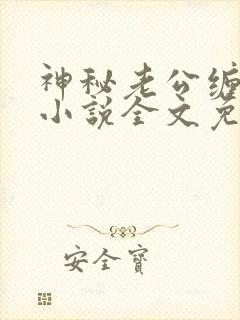 神秘老公缠
小说全文免
安全宝